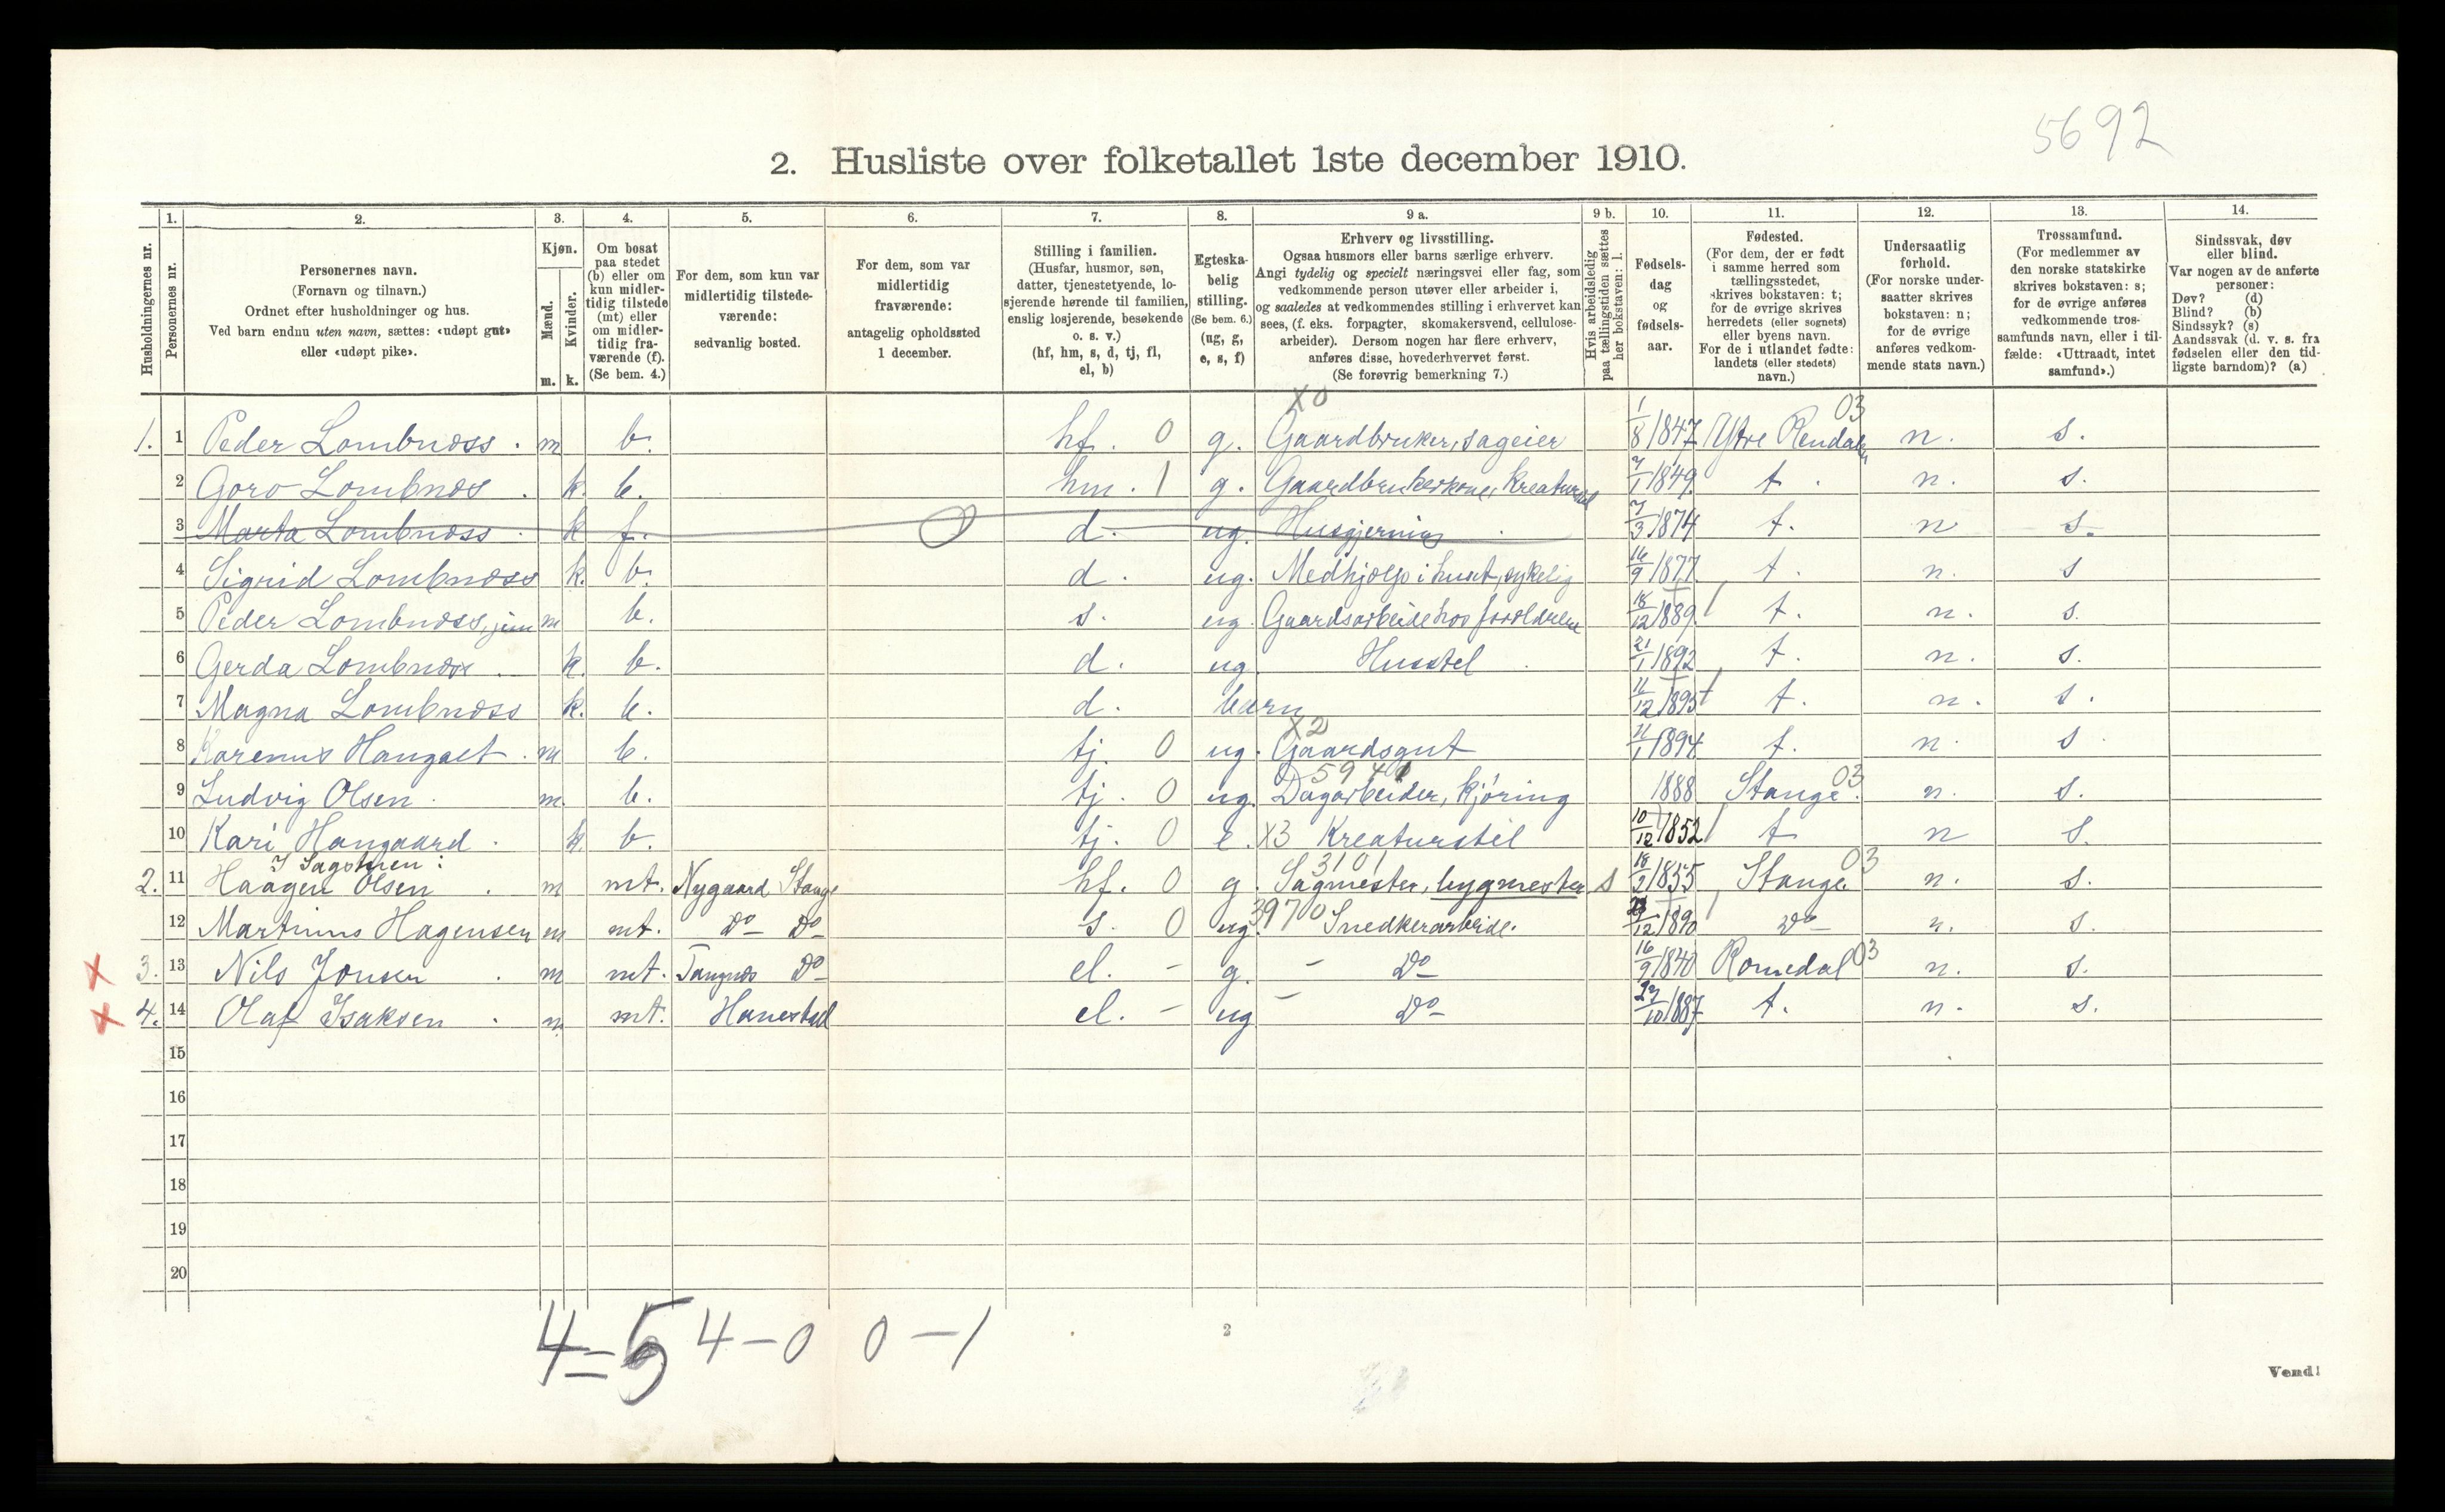 5692
2. Husliste over folketallet 1ste december 1910.
1. 2. 3. 4. 5. 6. 7. 8. 9 a. 9 b. 10. 11. 12. 13. 14.
Husholdningernes nr.
Personernes nr.
Personernes navn.
(Fornavn og tilnavn.)
Ordnet efter husholdninger og hus.
Ved barn endnu uten navn, sættes: «udøpt gut»
eller «udøpt pike».
Kjøn.
Mænd.
Kvinder.
m. k.
Om bosat
paa stedet
(b) eller om
kun midler-
tidig tilstede
(mt) eller
om midler-
tidig fra-
værende (f).
(Se bem. 4.)
For dem, som kun var
midlertidig tilstede-
værende:
sedvanlig bosted.
For dem, som var
midlertidig
fraværende:
antagelig opholdssted
1 december.
Stilling i familien.
(Husfar, husmor, søn,
datter, tjenestetyende, lo-
sjerende hørende til familien,
enslig losjerende, besøkende
o. s. v.)
(hf, hm, s, d, tj, fl,
el, b)
Egteska-
belig
stilling.
(Se bem. 6.)
(ug, g,
e, s, f)
Erhverv og livsstilling.
Ogsaa husmors eller barns særlige erhverv.
Angi tydelig og specielt næringsvei eller fag, som
vedkommende person utøver eller arbeider i,
og saaledes at vedkommendes stilling i erhvervet kan
sees, (f. eks. forpagter, skomakersvend, cellulose-
arbeider). Dersom nogen har flere erhverv,
anføres disse, hovederhvervet først.
(Se forøvrig bemerkning 7.)
Hvis arbeidsledig
paa tællingstiden sættes
her bokstaven: l.
Fødsels-
dag
og
fødsels-
aar.
Fødested.
(For dem, der er født
i samme herred som
tællingsstedet,
skrives bokstaven: t;
for de øvrige skrives
herredets (eller sognets)
eller byens navn.
For de i utlandet fødte:
landets (eller stedets)
navn.)
Undersaatlig
forhold.
(For norske under-
saatter skrives
bokstaven: n;
for de øvrige
anføres vedkom-
mende stats navn.)
Trossamfund.
(For medlemmer av
den norske statskirke
skrives bokstaven: s;
for de øvrige anføres
vedkommende tros-
samfunds navn, eller i til-
fælde: «Uttraadt, intet
samfund».)
Sindssvak, døv
eller blind.
Var nogen av de anførte
personer:
Døv? (d)
Blind? (b)
Sindssyk? (s)
Aandssvak (d. v. s. fra
fødselen eller den tid-
ligste barndom)? (a)
X0 03
1. 1 Peder Lombnæss. m b. hf. 0 g. Gaardbruker, sageier 1/8 1847 Ytre Rendalen n. s.
2 Goro Lombnæs. k. b. hm. 1 g. Gaardbrukerkone, Kreaturstel 7/1 1849 t. n. s.
3 Marta Lombnæss. k f. d. ug. Husgjerning 7/3 1874 t. n s.
4 Sigrid Lombnæss k. b. d. ug. Medhjælp i huset, sykelig 16/9 1877 t. n. s
5 Peder Lombnæss, jun m b. s. ug. Gaardsarbeide hos forældrene 18/12 1889 t. n. s.
6 Gerda Lombnæss k. b. d. ug. Husstel 21/1 1892 t. n. s.
7 Magna Lombnæss k. b. d. barn 11/12 1895 t. n. s.
X2
8 Karenus Haugset. m b. tj. 0 ug. Gaardsgut 11/1 1894 t. n. s
5940 03
9 Ludvig Olsen. m. b. tj. 0 ug. Dagarbeider, kjøring 1888 Stange. n. s.
10 Kari Haugaard. k. b. tj. 0 e. X3 Kreaturstel 10/12 1852 t n s.
I Sagstuen: 3101 03
2. 11 Haagen Olsen. m mt. Nygaard Stange hf. 0 g. Sagmester, bygmester s 18/2 1855 Stange. n. s.
12 Martinus Hagensen m mt. Do Do s. 0 ug. 3970 Snedkerarbeide. /12 1890 Do n. s.
3. 13 Nils Jonsen. m mt. Tangnes Do el. - g. - Do 16/9 1840 Romedal 03 n. s.
4. 14 Olaf Isaksen. m. mt. Hanestad el. - ug - Do 27/10 1887 t. n. s.
15
16
17
18
19
20
4=5 4-0 0-1
2
Vend!